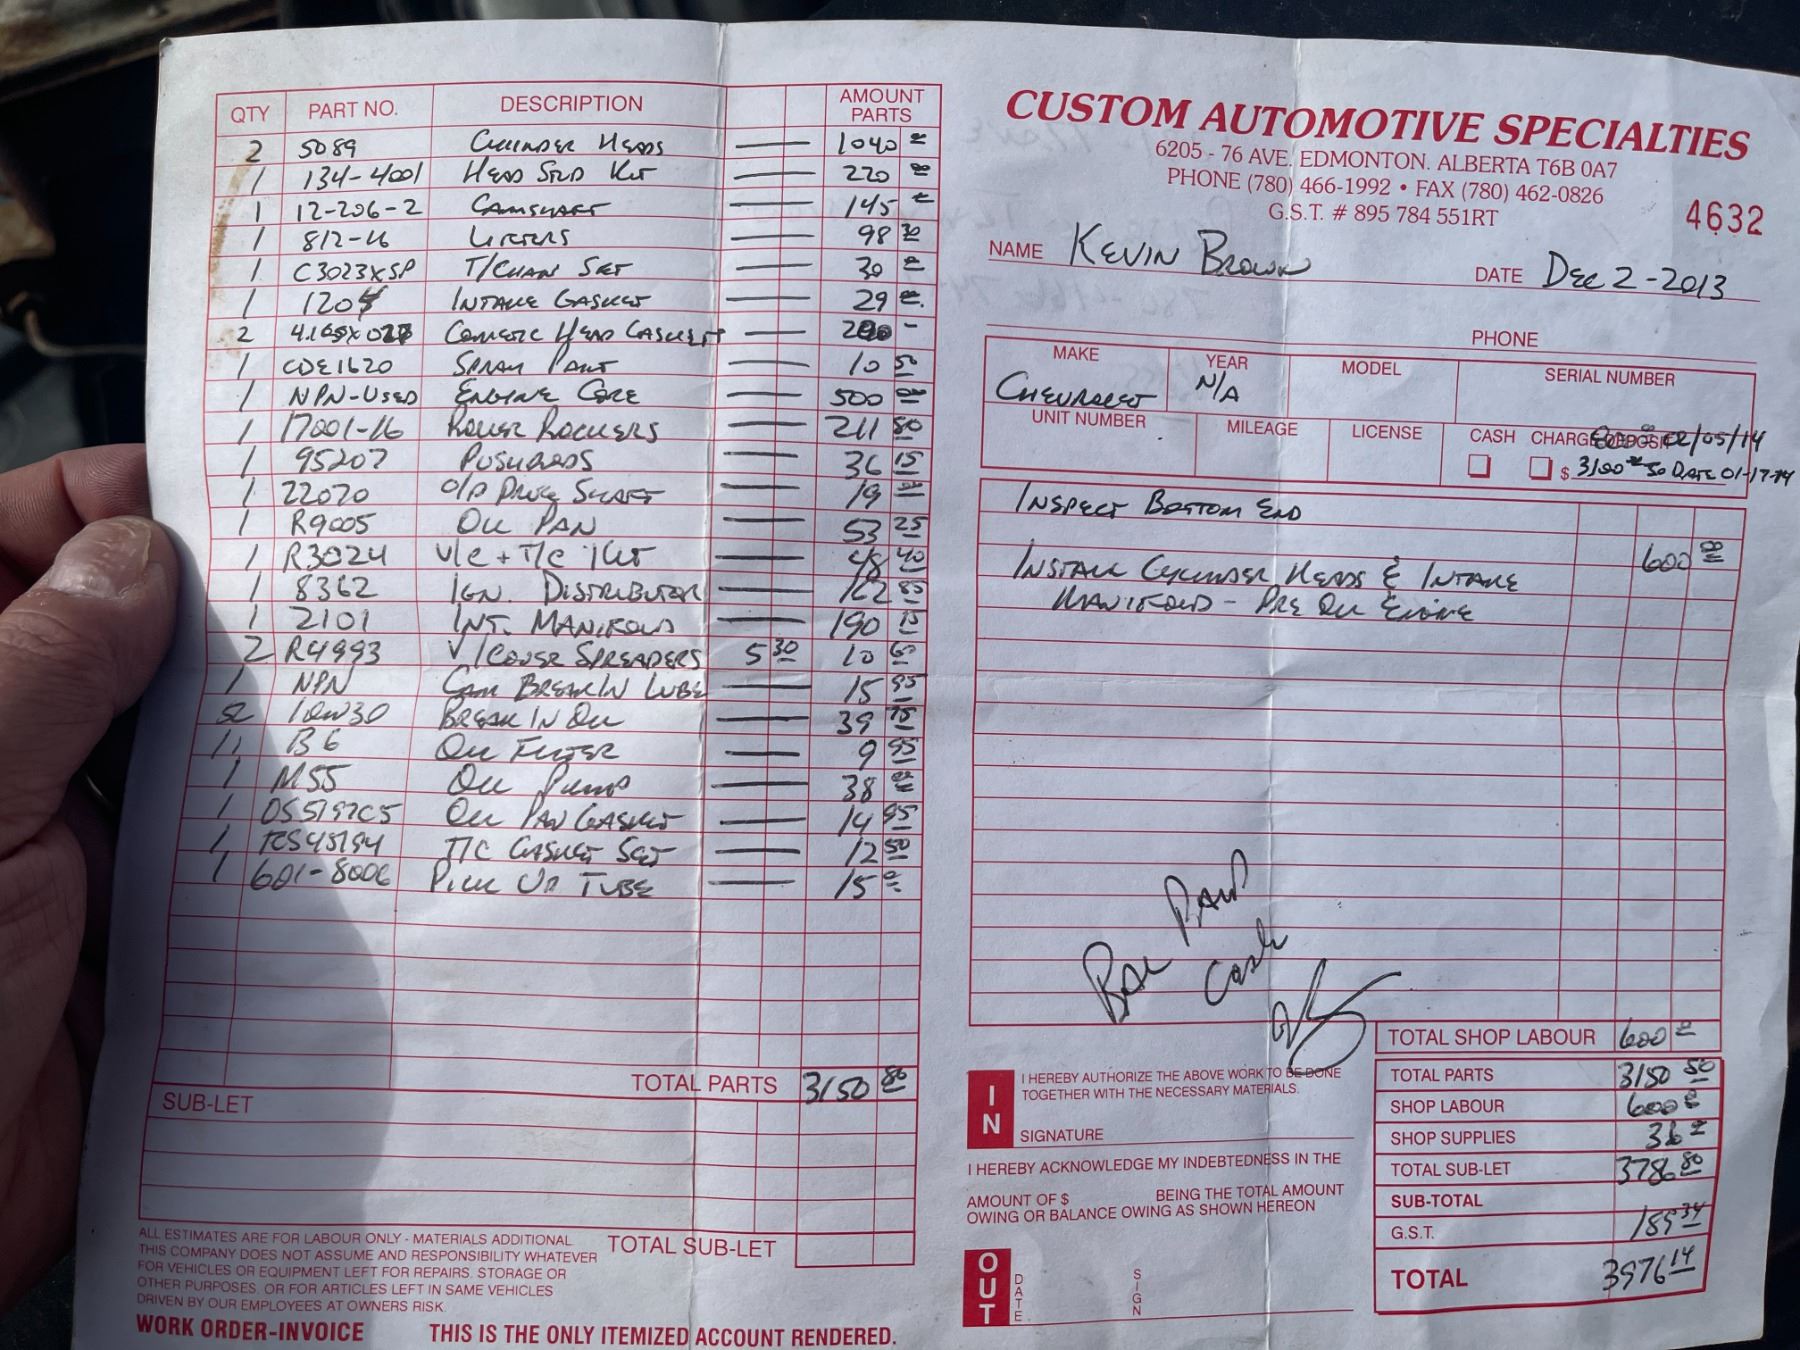 QTY PART NO. DESCRIPTION AMOUNT PARTS
2 5089 Cylinder Heads 1040 00
1 134-4001 Head Stud Kit 220 00
1 12-206-2 Camshaft 145 00
1 812-16 Lifters 98 30
1 C3023XSP T/Chain Set 30 00
1 1204 Intake Gasket 29 00
2 Cometic Head Gaskets
1 CDE1620 Spray Paint 10 50
1 NPN-Used Engine Core 500 00
1 17001-16 Roller Rockers 211 80
1 95207 Pushrods 36 15
1 22070 O/P Drive Shaft 19 00
1 R9005 Oil Pan 53 25
1 R3024 V/C + T/C Kit 48 40
1 8362 Ign. Distributor 162 85
1 2101 Int. Manifold 190 75
2 R4993 V/Cover Spreaders 5 30 10 60
1 NPN Cam Break In Lube 15 95
10w30 Break In Oil 39 75
B6 Oil Filter 9 95
1 M55 Oil Pump 38 00
1 Oil Pan Gasket 14 95
1 T/C Gasket Set 12 50
1 601-8006 Pick Up Tube 15 00
TOTAL PARTS 3150 80
SUB-LET
TOTAL SUB-LET
ALL ESTIMATES ARE FOR LABOUR ONLY - MATERIALS ADDITIONAL
THIS COMPANY DOES NOT ASSUME AND RESPONSIBILITY WHATEVER
FOR VEHICLES OR EQUIPMENT LEFT FOR REPAIRS. STORAGE OR
OTHER PURPOSES. OR FOR ARTICLES LEFT IN SAME VEHICLES
DRIVEN BY OUR EMPLOYEES AT OWNERS RISK.
WORK ORDER-INVOICE THIS IS THE ONLY ITEMIZED ACCOUNT RENDERED.
CUSTOM AUTOMOTIVE SPECIALTIES
6205 - 76 AVE. EDMONTON. ALBERTA T6B 0A7
PHONE (780) 466-1992 • FAX (780) 462-0826
G.S.T. # 895 784 551RT
4632
NAME Kevin Brown DATE Dec 2-2013
PHONE
MAKE YEAR MODEL SERIAL NUMBER
Chevrolet N/A
UNIT NUMBER MILEAGE LICENSE CASH CHARGE DEPOSIT
$ 3100 00 to Date 01-17-14
Inspect Bottom End
600 00
Install Cylinder Heads & Intake
Manifold - Pre Oil Engine
Bal Paid
Cash
TOTAL SHOP LABOUR 600 00
TOTAL PARTS 3150 80
SHOP LABOUR 600 00
SHOP SUPPLIES 36 00
TOTAL SUB-LET 3786 80
SUB-TOTAL
G.S.T. 189 34
TOTAL 3976 14
IN
I HEREBY AUTHORIZE THE ABOVE WORK TO BE DONE
TOGETHER WITH THE NECESSARY MATERIALS.
SIGNATURE
I HEREBY ACKNOWLEDGE MY INDEBTEDNESS IN THE
AMOUNT OF $ BEING THE TOTAL AMOUNT
OWING OR BALANCE OWING AS SHOWN HEREON
OUT
DATE
SIGN